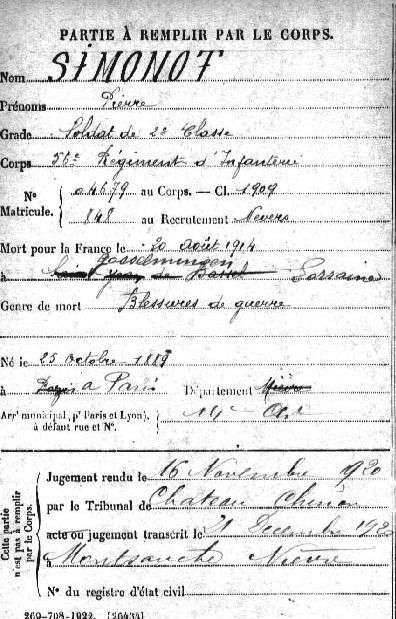 PARTIE À REMPLIR PAR LE CORPS.
Nom SIMONOT
Prénoms Pierre
Grade Soldat de 2e Classe
Corps 56e Régiment d'Infanterie
N° 04679 au Corps. — Cl. 1909
Matricule. 848 au Recrutement Nevers
Mort pour la France le 20 août 1914
Gosselmingen
à Saint Jean de Bassel Lorraine
Genre de mort Blessures de guerre
Né le 25 octobre 1889
à à Paris Département Nièvre
Arrt municipal (pr Paris et Lyon), 14e Art
à défaut rue et N°.
Cette partie n'est pas à remplir par le Corps.
Jugement rendu le 16 Novembre 1920
par le Tribunal de Chateau Chinon
acte ou jugement transcrit le 21 Decembre 1920
à Montsauche Nièvre
N° du registre d'état civil
269-708-1922. [26434]